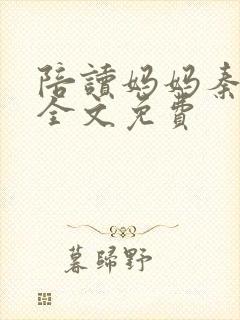 陪讀媽媽秦
全文免費
暮歸野